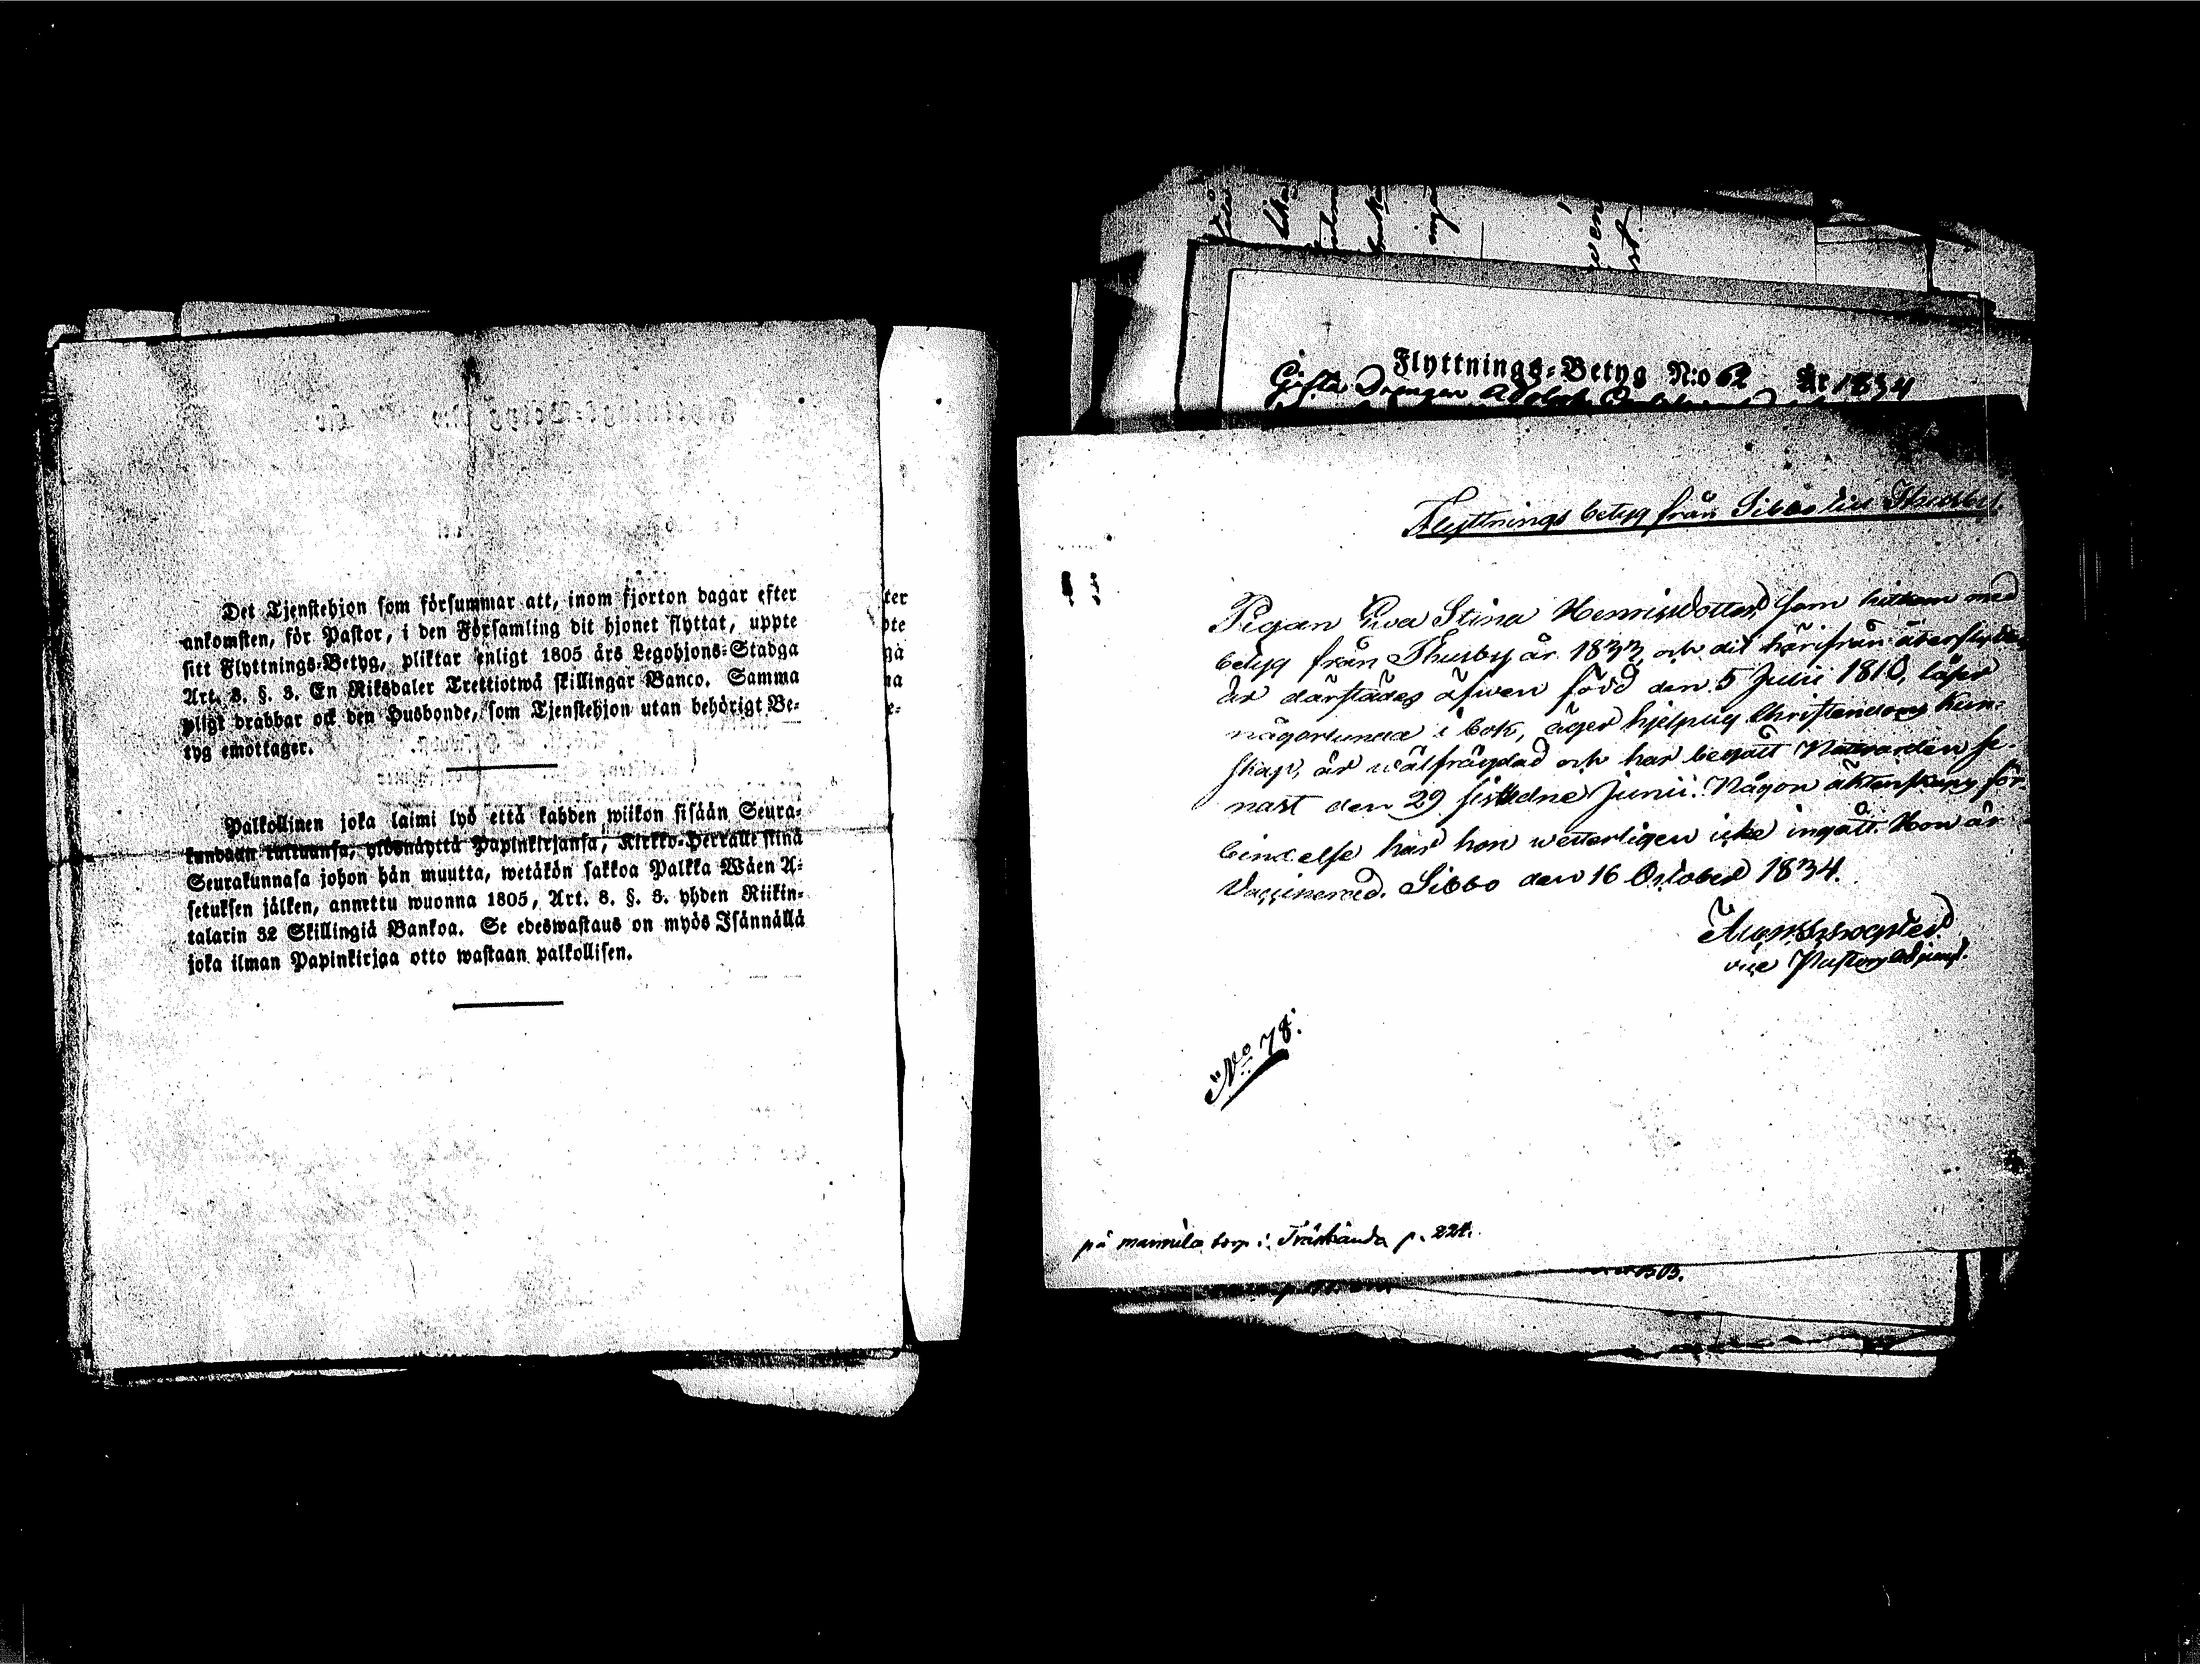 Det Tjenstehjon som försummar att, inom fjorton dagar efter
ankomsten, för Pastor, i den Församling dit hjonet flyttat, uppte
sitt Flyttnings-Betyg, pliktar enligt 1805 års Legohjons-Stadga
Art. 8. §. 3. En Riksdaler Trettiotwå skillingar Banco. Samma
pligt drabbar ock den Husbonde, som Tjenstehjon utan behörigt Be-
tyg emottager.
Palkollinen joka laimi lyö että kahden wiikon sisään Seura-
kundaan tultuansa, ylösnäyttä Papinkirjansa, Kirkko-Herralle siinä
Seurakunnasa johon hän muutta, wetäkön sakkoa Palkka Wäen A-
setuksen jälken, annettu wuonna 1805, Art. 8. §. 3. yhden Riikin-
talarin 32 Skillingiä Bankoa. Se edeswastaus on myös Isännällä
joka ilman Papinkirjaa otto wastaan palkollisen.
ter
pte
ga
na
e-
Flyttnings-Betyg N:o 62 År 1834
Gifta Drengen Adolph
Flyttnings betyg från Sibbo till Thusby.
Pigan Ewa Stina Henricsdotter, som hitkom med
betyg från Thusby år 1833, och dit härifrån återflyttar,
är därstädes äfwen född den 5 Julii 1810, läser
någorlunda i bok, äger hjelplig Christendoms Kun-
skap, är wälfrägdad och har begått Nattvarden se-
nast den 29 sistledne Junii. Någon äktenskaps för-
bindelse har hon wetterligen icke ingått. Hon är
Vaccinerad. Sibbo den 16 October 1834.
vice Pastors adjunct.
No 78.
på mannila torp i Träskända p. 224.